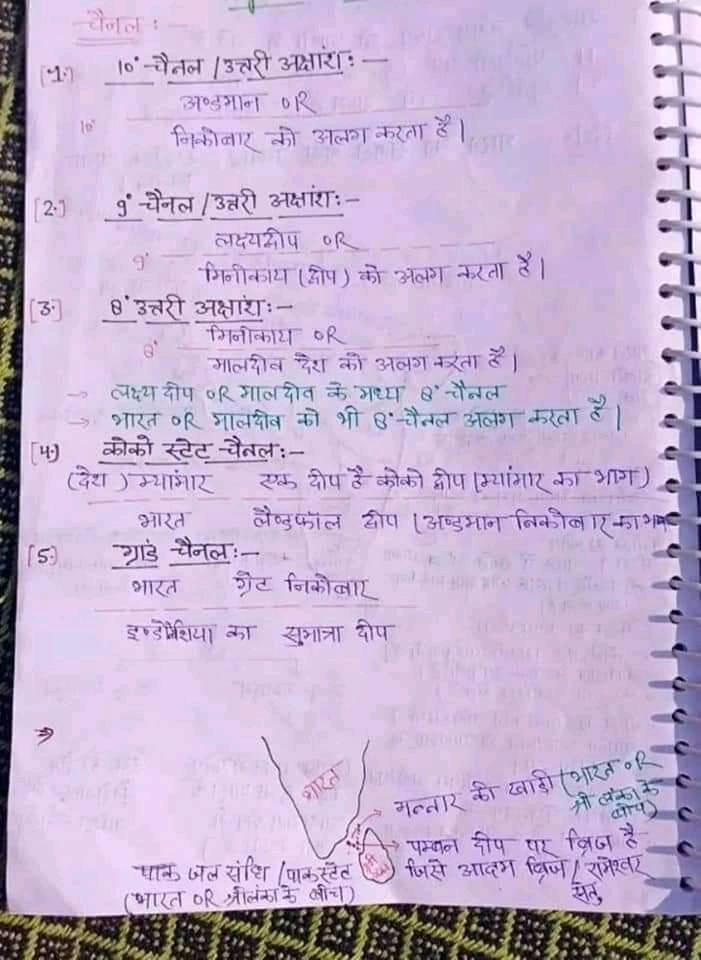 चैनल :-
[1.] 10° चैनल / उत्तरी अक्षांश :-
अण्डमान OR
10°
निकोबार को अलग करता है।
[2.] 9° चैनल / उत्तरी अक्षांश :-
लक्ष्यदीप OR
9°
मिनीकाय (दीप) को अलग करता है।
[3.] 8° उत्तरी अक्षांश :-
मिनीकाय OR
8°
मालदीव देश को अलग करता है।
→ लक्ष्य दीप OR मालदीव के मध्य 8° चैनल
→ भारत OR मालदीव को भी 8° चैनल अलग करता है।
[4.] कोको स्टेट चैनल :-
(देश) म्यांमार एक दीप है कोको दीप (म्यांमार का भाग)
भारत लैण्डफॉल दीप (अण्डमान निकोबार का भाग
[5.] ग्रांड चैनल :-
भारत ग्रेट निकोबार
इण्डोनेशिया का सुमात्रा दीप
भारत
मन्नार की खाडी (भारत OR श्री लंका के बीच)
पम्बन दीप पर ब्रिज है
जिसे आदम ब्रिज / रामेश्वर सेतु
पाक जल संधि / पाकस्टेट
(भारत OR श्रीलंका के बीच)